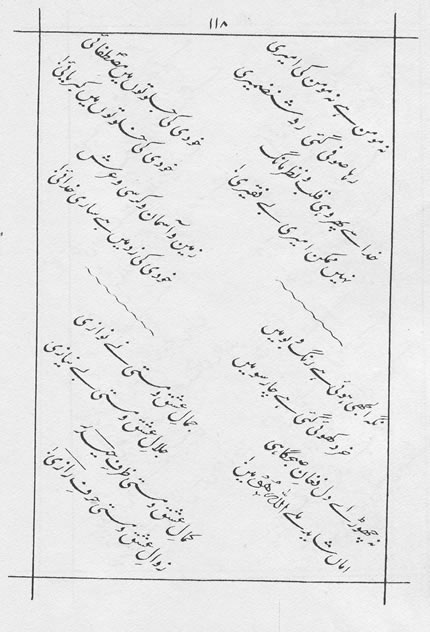 ۱۱۸
نہ مومن ہے نہ مومن کی امیری
رہا صوفی گئی روشن ضمیری
خدا سے پھر وہی قلب و نظر مانگ
نہیں ممکن امیری بے فقیری!
خودی کی جلوتوں میں مصطفائی
خودی کی خلوتوں میں کبریائی!
زمین و آسمان و کرسی و عرش
خودی کی زد میں ہے ساری خدائی!
نگہ الجھی ہوئی ہے رنگ و بو میں
خرد کھوئی گئی ہے چار سو میں
نہ چھوڑ اے دل فغانِ صبحگاہی
اماں شاید ملے اللہ ھو میں!
جمالِ عشق و مستی نے نوازی
جلالِ عشق و مستی بے نیازی
کمالِ عشق و مستی ظرفِ حیدر
زوالِ عشق و مستی حرفِ رازی!